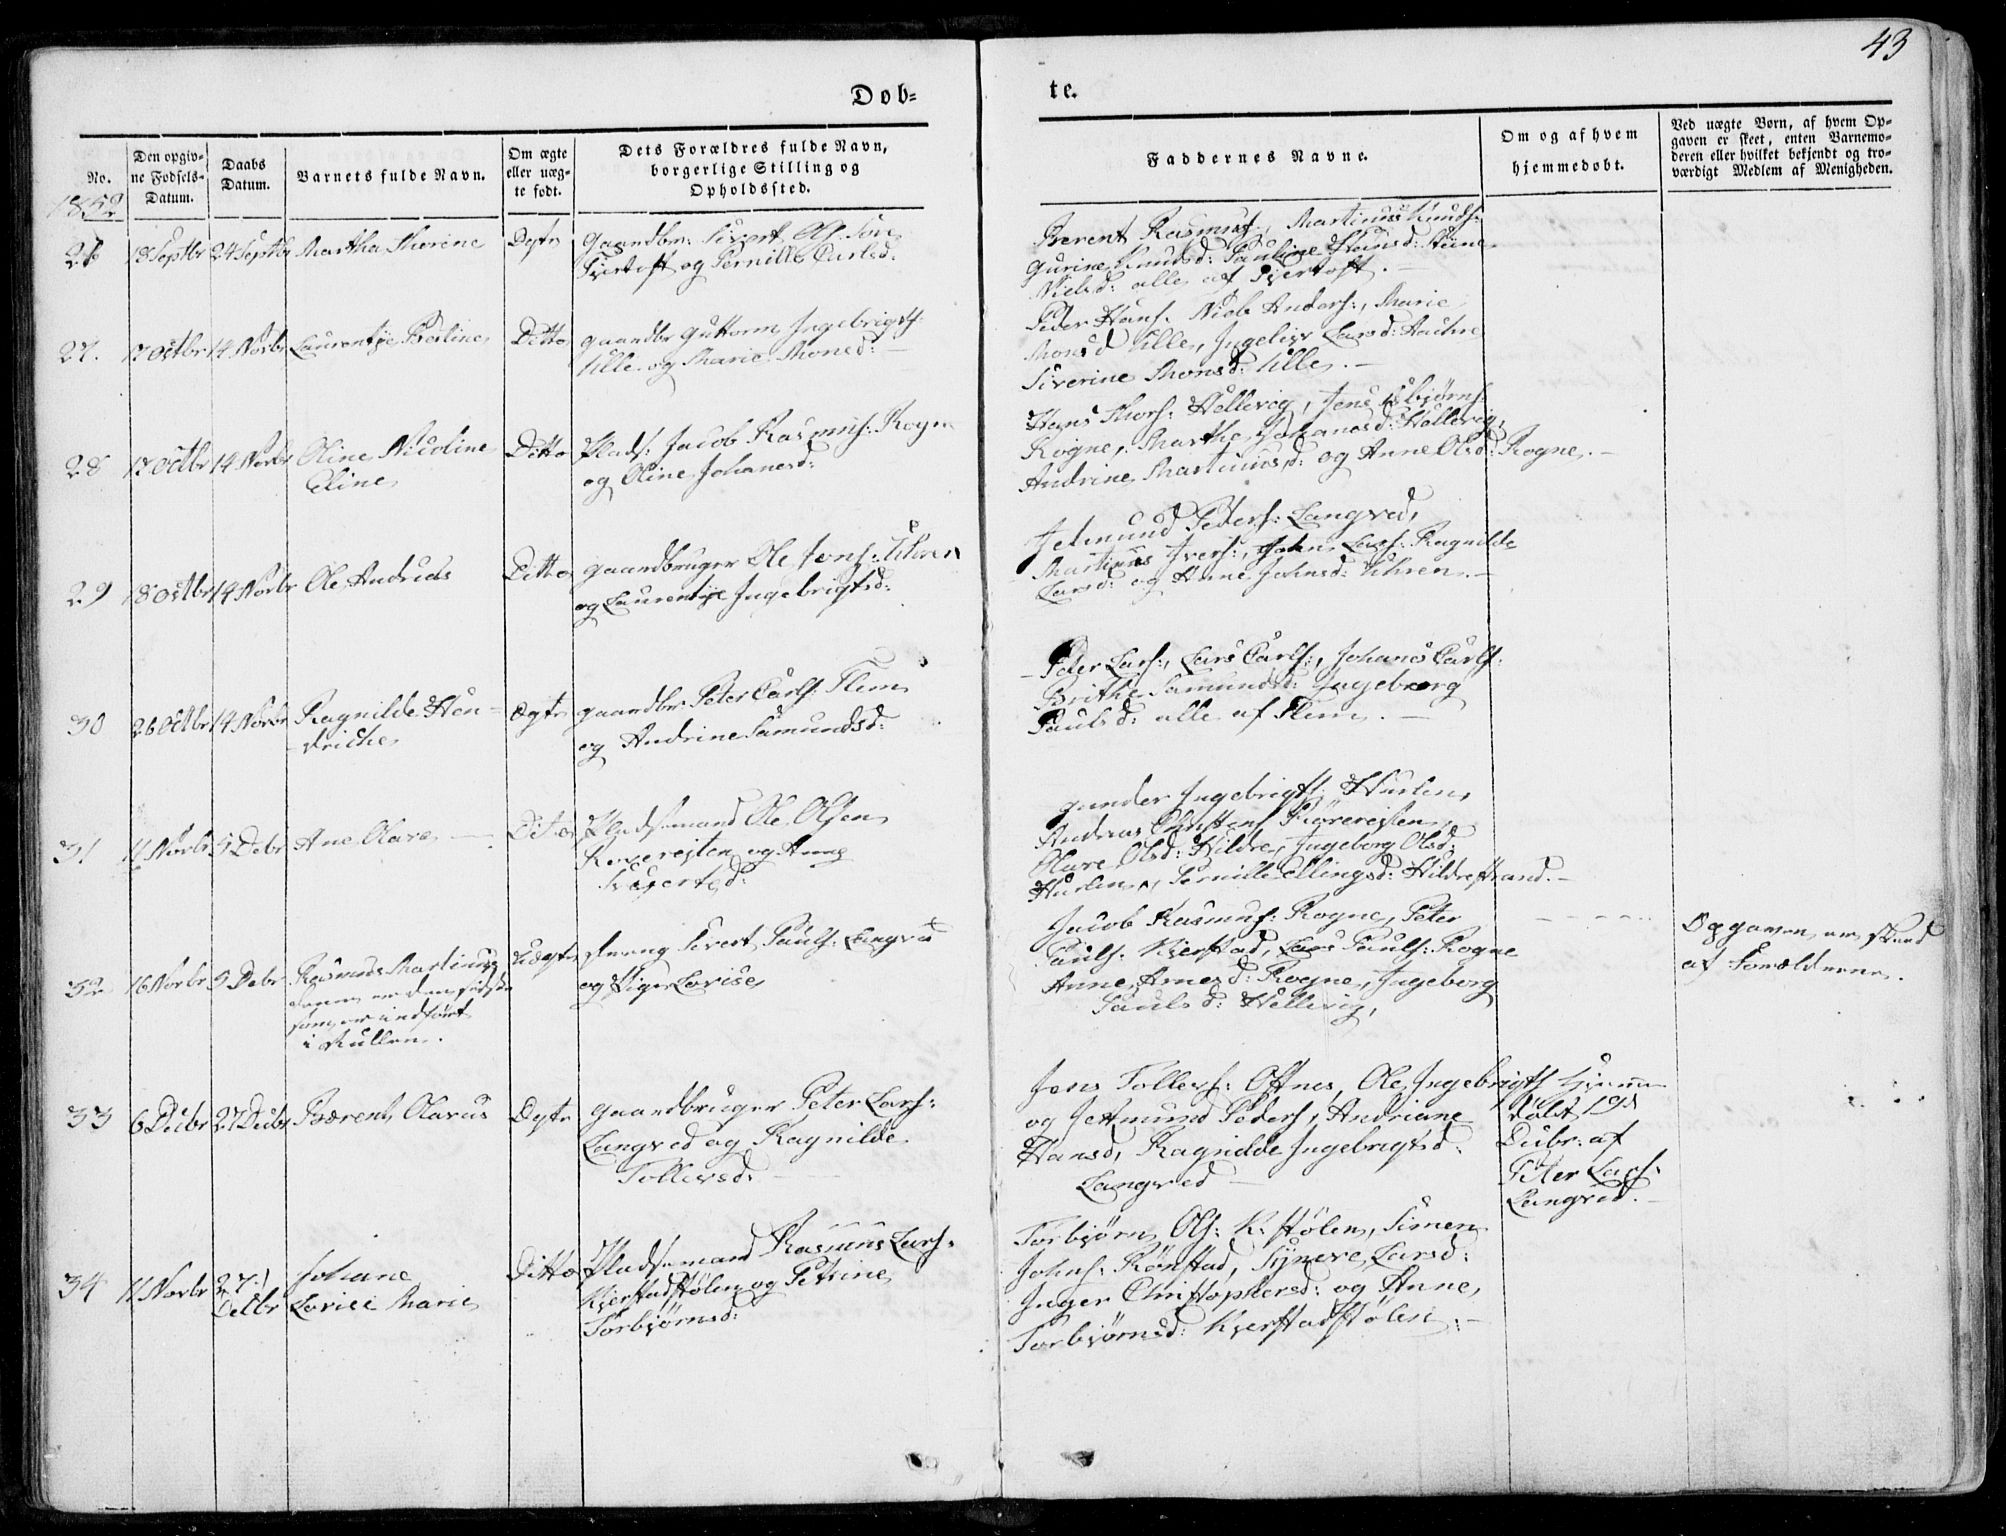 43
Døb=
te.
No.
Den opgiv=
ne Fødsels=
Datum.
Daabs
Datum.
Barnets fulde Navn.
Om ægte
eller uæg=
te født.
Dets Forældres fulde Navn,
borgerlige Stilling og
Opholdssted.
Faddernes Navne.
Om og af hvem
hjemmedøbt.
Ved uægte Børn, af hvem Op=
gaven er skeet, enten Barnemo=
deren eller hvilket bekjendt og tro=
værdigt Medlem af Menigheden.
1852
26 18 Septbr 24 Septbr Martha Therine Ægte Gaardbr: Sivert
Fjertoft og Pernille Carlsd.
Berent Rasmuss:, Martinus Knuds:
Gurine Knudsd: Pauline Hansd:
Nielsd: alle af Fjertoft.
27. 17 Octbr 14 Novbr Laurentje Berline Ditto gaardbr Guttorm Ingebrigts:
Ulle og Marie Monsd:
Peder Hans. Niels Anders:, Marie
Monsd Ulle, Larsd:
Siverine Monsd: Ulle.
28 17 Octbr 14 Novbr Oline Nicoline Ditto Plads: Jacob Rasmus: Rogne
Eline
og Oline Johanesd:
Hans Thors: Hellevig, Jens Esbjørns
Rogne, Marthe Johanesd: Hellevig,
Andrine Martinusd: og Anne Olsd: Rogne.
29 18 Octbr 14 Novbr Ole Andreas Ditto gaardbruger Ole Jons: Uhren
og Laurentje Ingebrigtsd:
Jetmund Peders: Langved,
Martinus Ivers:, John Lars: Ragnilde
Larsd: og Anne Johnsd: Uhren.
30 26 Octbr 14 Novbr Ragnilde Hen-
driche Ægte gaardbr Peter Carls: Flem
og Andrine Samundsd:
Peter Lars:, Lars Carls:, Johanes Carls:
Brithe Samundsd: Ingeborg
Paulsd: alle af Flem.
31 11 Novbr 5 Debr Ane Olave Ditto Pladsmand Ole Olsen
Røverejten og Anne
Sivertsd:
gunder Ingebrigts: Hurlen,
Andreas Christens Røverejten,
Olave Olsd: Hildre, Ingeborg Olsd:
Hurlen, Pernille Ellingsd: Hildrestrand.
32 16 Novbr 5 Debr Rasmus Martinus Uægte dreng Sivert Pauls: Langved
denne er den første
som er indført
i Rullen.
og Pige Lovise
Jacob Rasmus: Rogne, Peter
Pauls: Kjerstad, Lars Pauls: Rogne
Anne Arnesd: Rogne, Ingeborg
Paulsd: Hellevig,
Opgaven er skeed
af Forældrene.
33 6 Decbr 27 Decbr Bærent Olarus Ægte gaardbruger Peter Lars:
Langved og Ragnilde
Tollevsd:
Jens Tollevs: Oftnes, Ole Ingebrigts
og Jetmund Peders, Andriane
Hansd, Ragnilde Ingebrigtsd:
Langved
hjemme
døbt 19d
Decbr: af
Peter Lars:
Langved.
34 11 Novbr 27d
Decbr Johane
Lovise Marie Ditto Pladsmand Rasmus Lars:
Kjerstadstølen og Petrine
Torbjørnsd:
Torbjørn Ols: K:støLen, Simen
Johns: Rønstad, Syneve Larsd:
Inger Christophersd: og Anne
Torbjørnsd: Kjerstadstølen.